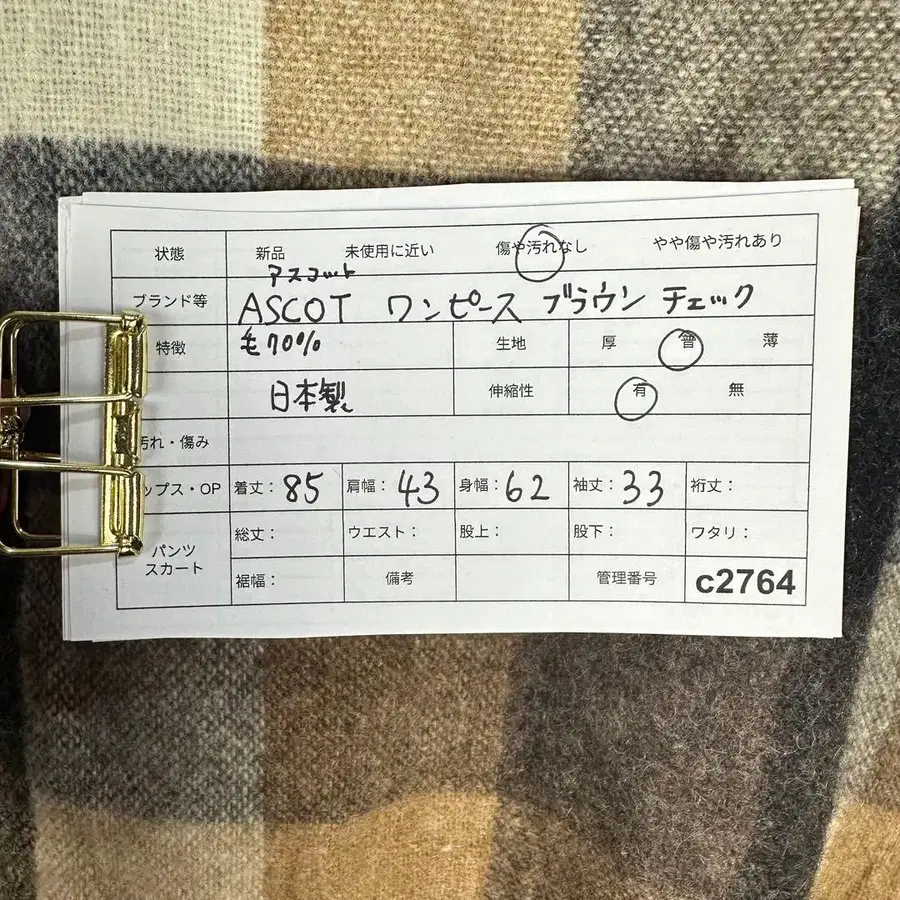 状態 新品 未使用に近い 傷や汚れなし やや傷や汚れあり
アスコット
ブランド等 ASCOT ワンピース ブラウン チェック
特徴 毛70% 生地 厚 普 薄
日本製 伸縮性 有 無
汚れ・傷み
ップス・OP 着丈：85 肩幅：43 身幅：62 袖丈：33 裄丈：
パンツ
スカート
総丈： ウエスト： 股上： 股下： ワタリ：
裾幅： 備考 管理番号 c2764